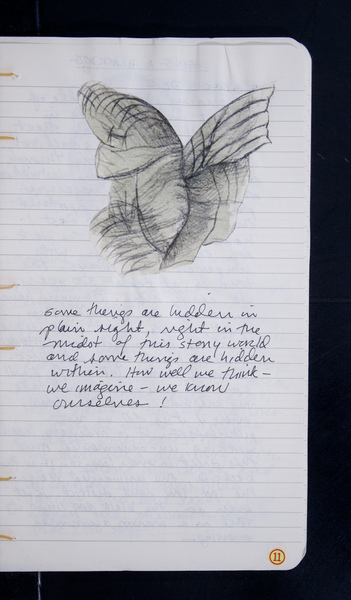 some things are hidden in
plain sight, right in the
midst of this story world
and some things are hidden
within. How well we think –
we imagine – we know
ourselves!
11